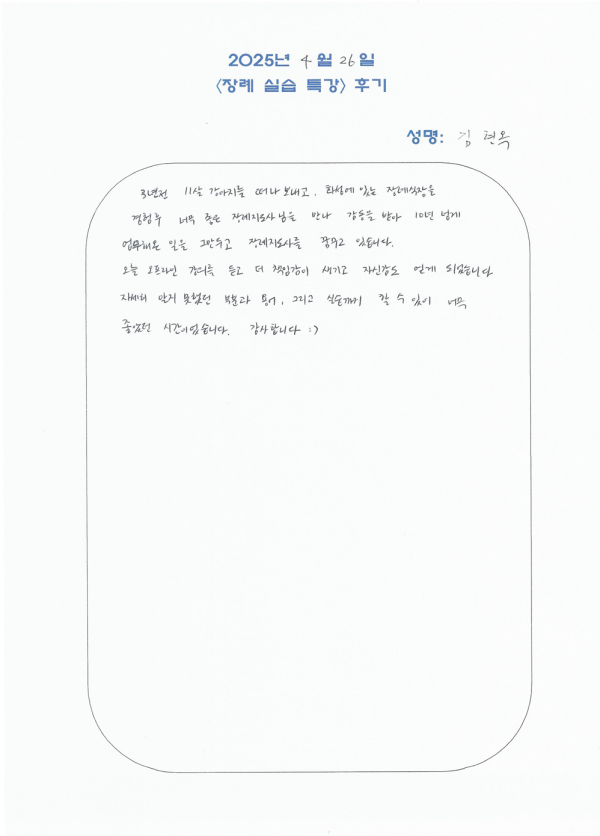 2025년 4월 26일
<장례 실습 특강> 후기
성명: 김현옥
3년전 11살 강아지를 떠나 보내고, 화성에 있는 장례식장을
경험후 너무 좋은 장례지도사님을 만나 감동을 받아 10년 넘게
일을 그만두고 장례지도사를 꿈꾸고 있습니다.
오늘 오프라인 강의를 듣고 더 책임감이 생기고 자신감도 얻게 되었습니다
자세히 알지 못했던 부분과 용어, 그리고 실습까지 할 수 있어 너무
좋았던 시간이었습니다. 감사합니다 :)